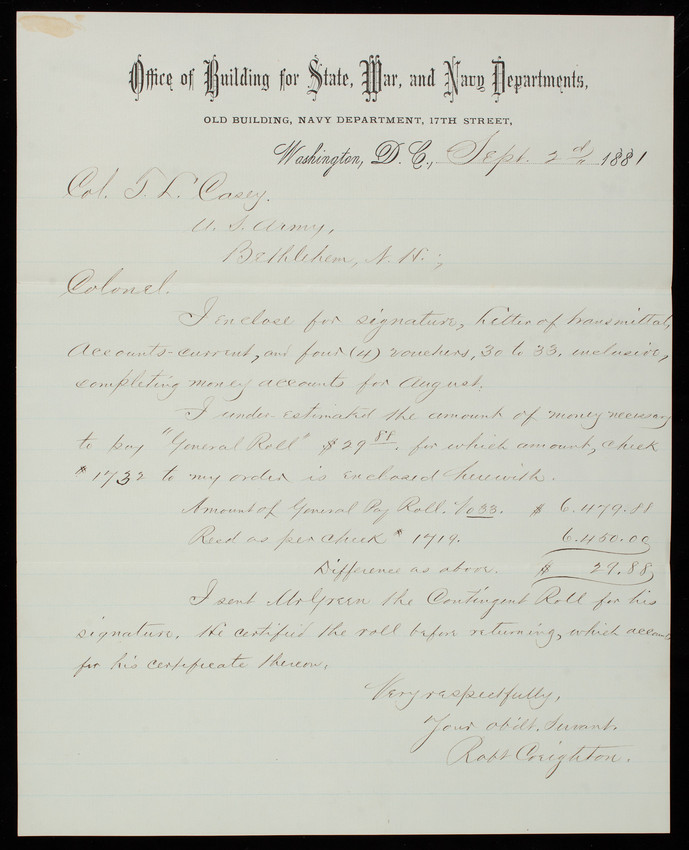 Office of Building for State, War, and Navy Departments,
OLD BUILDING, NAVY DEPARTMENT, 17TH STREET,
Washington, D. C., Sept. 2d, 1881
Col. T. L. Casey.
U. S. Army,
Bethlehem, N. H.;
Colonel.
I enclose for signature, letter of transmittal,
accounts-current, and four (4) vouchers, 30 to 33, inclusive,
completing money accounts for August.
I under estimated the amount of money necessary
to pay "General Roll" $29 88. for which amount, check
# 1732 to my order is enclosed herewith.
Amount of General Pay Roll. Vo 33. $ 6.479.88
Recd as per check # 1719. 6.450.00
Difference as above. $ 29.88
I sent Mr Green the Contingent Roll for his
signature. He certified the roll before returning, which accounts
for his certificate thereon.
Very respectfully,
Your obdt. Servant.
Robt Creighton.